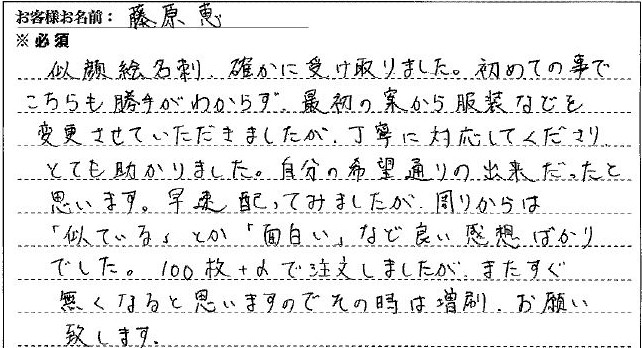 お客様お名前：藤原 恵
※必須
似顔絵名刺、確かに受け取りました。初めての事で
こちらも勝手がわからず、最初の案から服装などを
変更させていただきましたが、丁寧に対応してくださり
とても助かりました。自分の希望通りの出来だったと
思います。早速配ってみましたが、周りからは
「似ている」とか「面白い」など良い感想ばかり
でした。100枚+αで注文しましたが、またすぐ
無くなると思いますのでその時は増刷、お願い
致します。